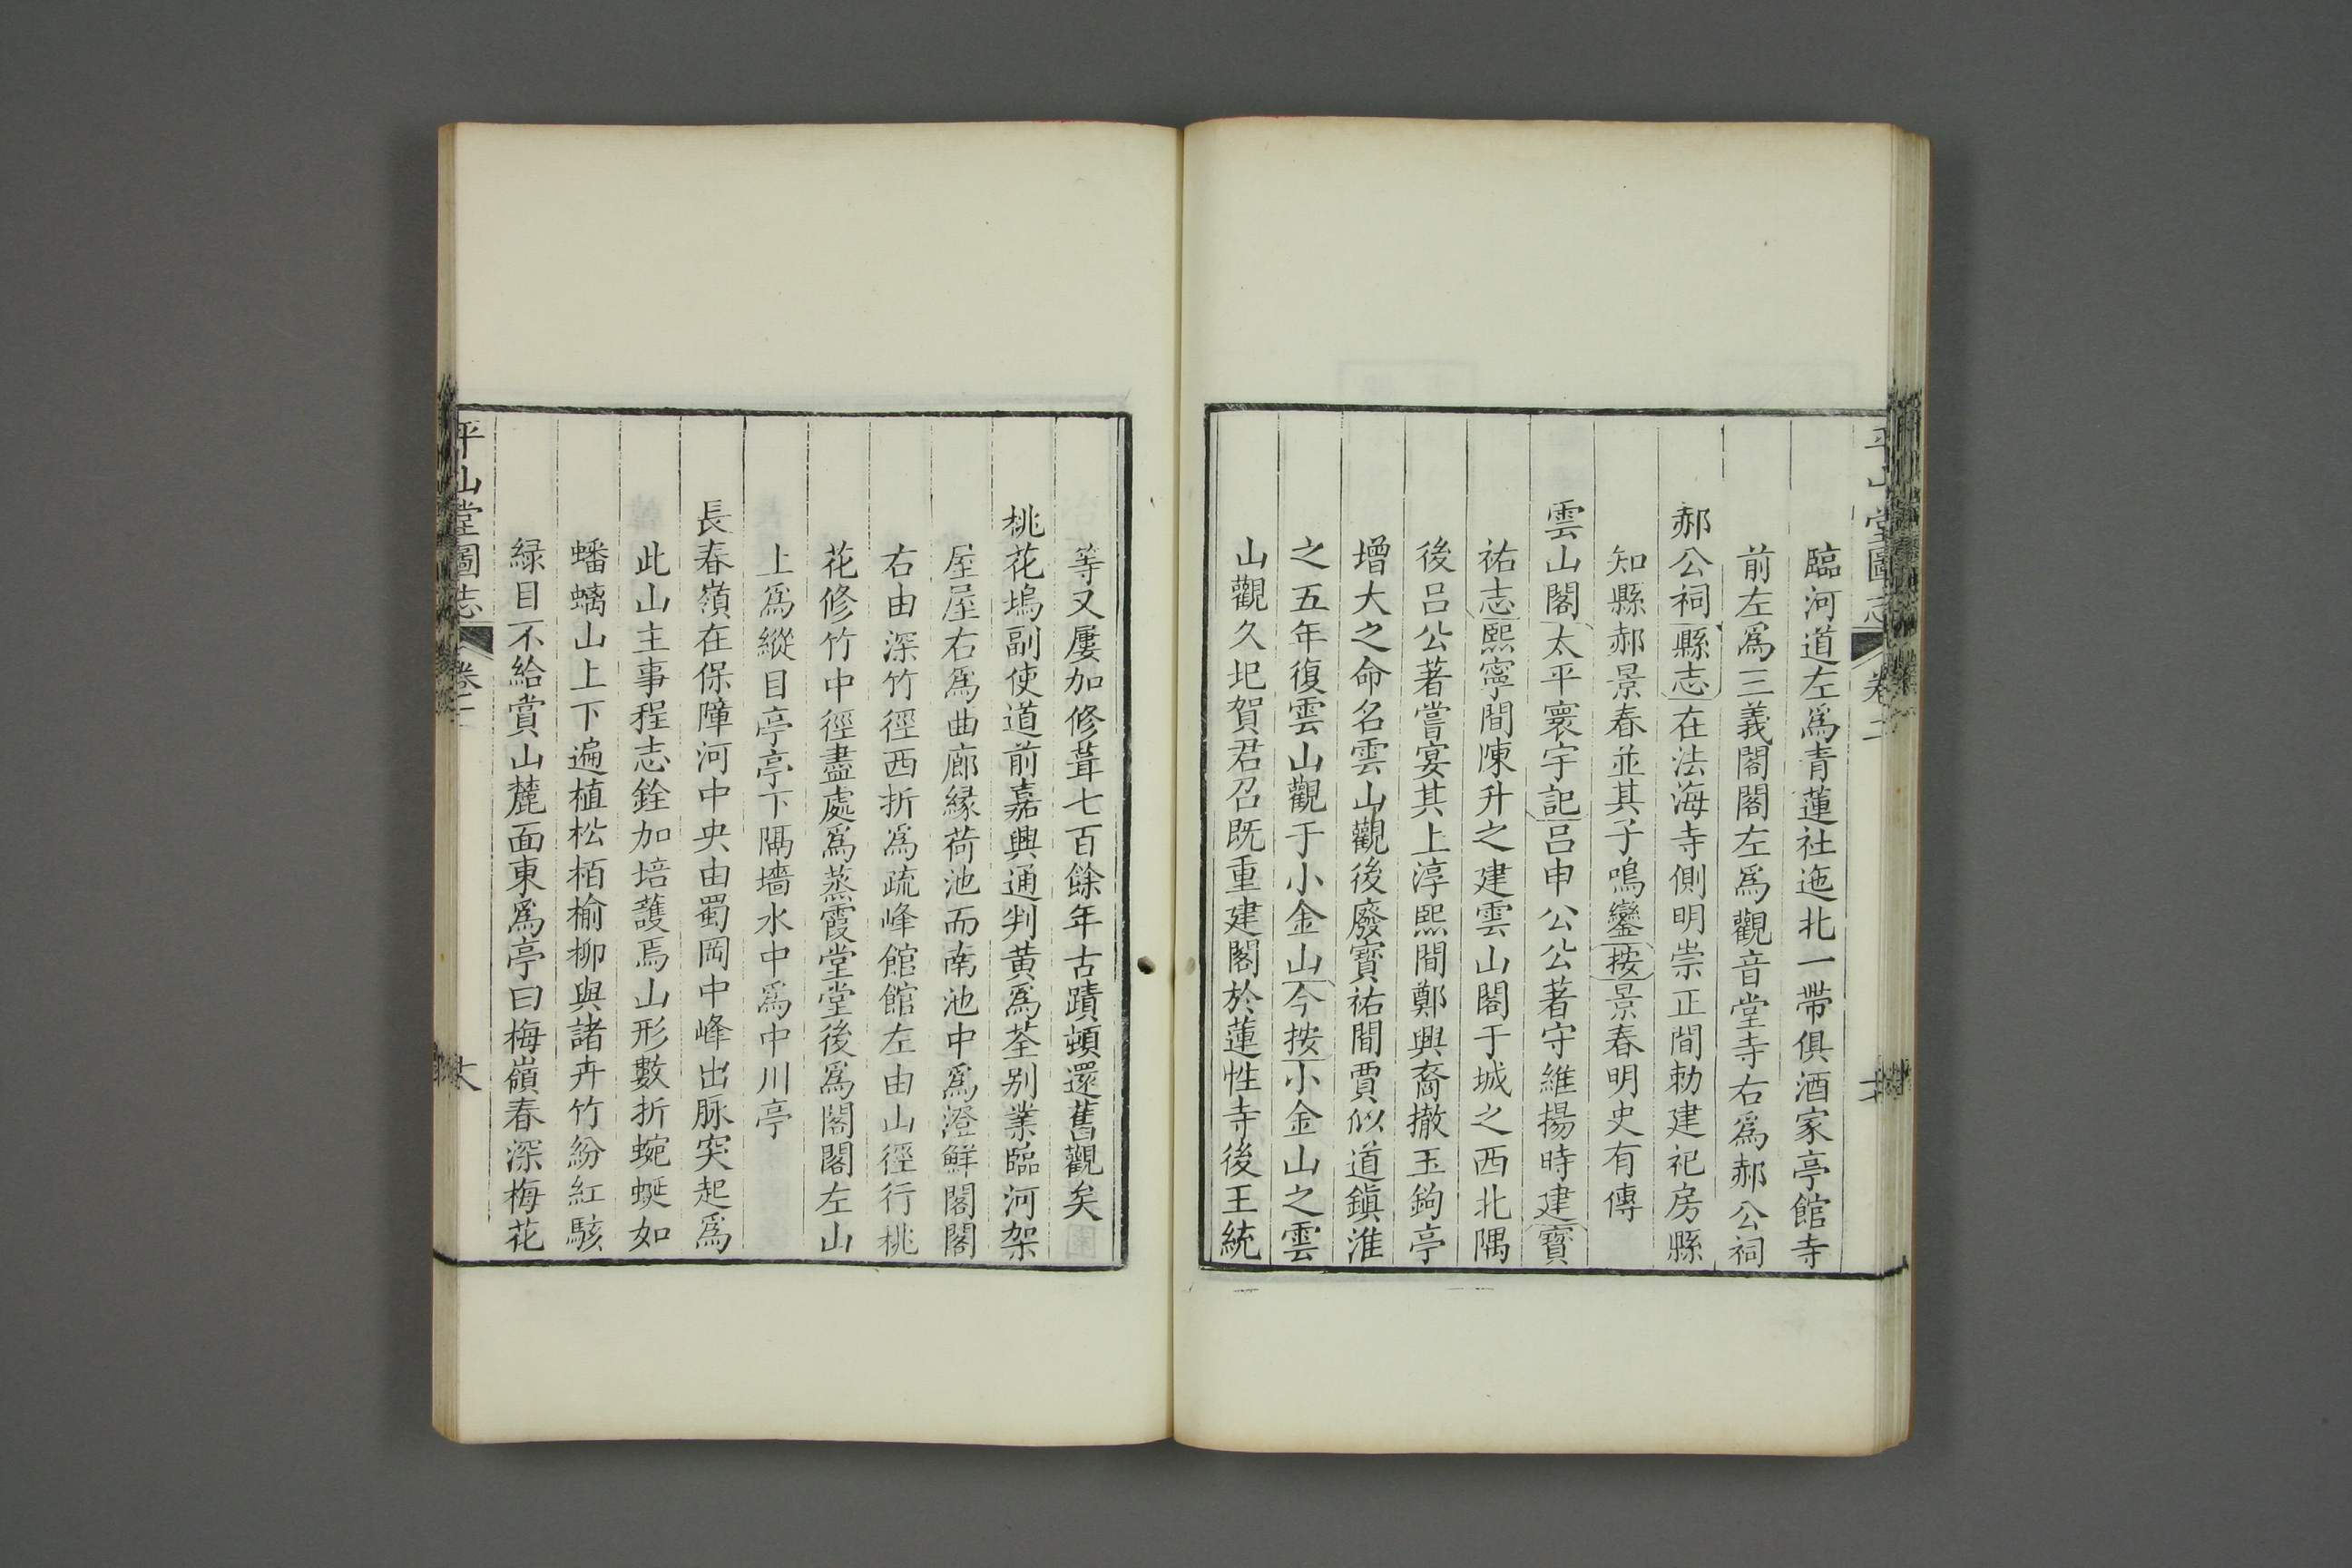 平山堂圖志 卷二
臨河道左爲青蓮社迤北一帶俱酒家亭館寺
前左爲三義閣閣左爲觀音堂寺右爲郝公祠
郝公祠縣志在法海寺側明崇正間勅建祀房縣
知縣郝景春並其子鳴鑾按景春明史有傳
雲山閣太平寰宇記吕申公公著守維揚時建寶
祐志熙寧間陳升之建雲山閣于城之西北隅
後吕公著嘗宴其上淳熙間鄭興裔撤玉鉤亭
增大之命名雲山觀後廢寶祐間賈似道鎮淮
之五年復雲山觀于小金山今按小金山之雲
山觀久圯賀君召旣重建閣於蓮性寺後王統
等又屢加修葺七百餘年古蹟頓還舊觀矣
桃花塢副使道前嘉興通判黃爲荃别業臨河架
屋屋右爲曲廊緣荷池而南池中爲澄鮮閣閣
右由深竹徑西折爲疏峰館館左由山徑行桃
花修竹中徑盡處爲蒸霞堂堂後爲閣閣左山
上爲縱目亭亭下隔墻水中爲中川亭
長春嶺在保障河中央由蜀岡中峰出脉突起爲
此山主事程志銓加培護焉山形數折蜿蜒如
蟠螭山上下遍植松栢榆柳與諸卉竹紛紅駭
緑目不給賞山麓面東爲亭曰梅嶺春深梅花
平山堂圖志 卷二